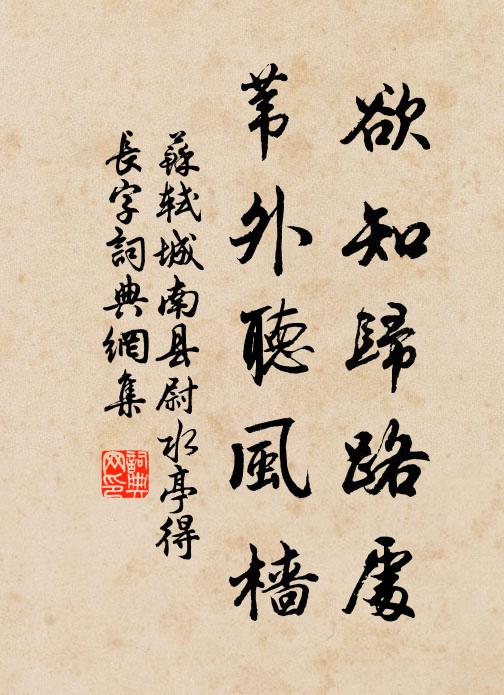 欲知歸路處
葦外聽風檣
蘇軾城南县尉水亭得
長字詞典網集
詞典
网印